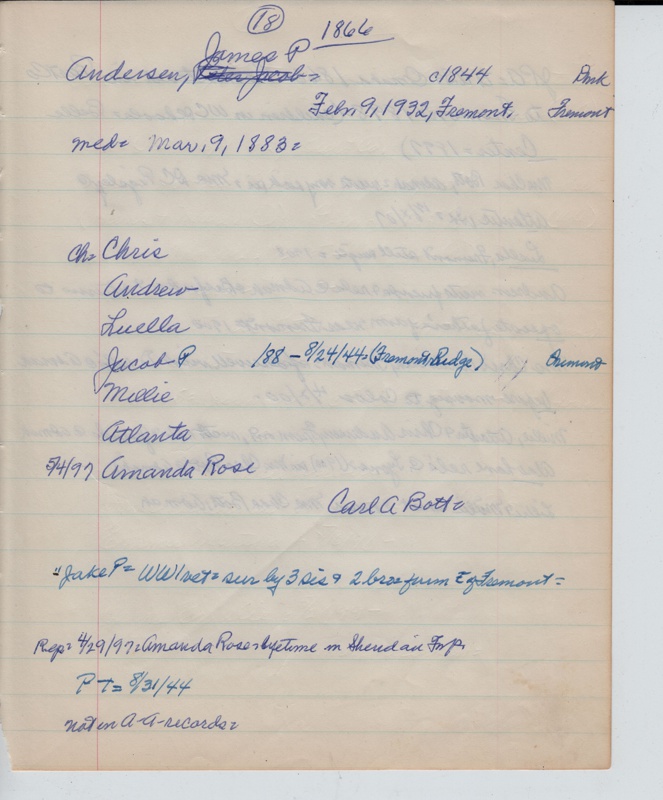 18
1866
James P
Andersen, Peter Jacob= c1844 Dmk
Feb. 9, 1932, Fremont, Fremont
med= Mar. 9, 1883=
ch= Chris
Andrew
Luella
Jacob P 188 - 8/24/44 (Fremont, Ridge) Fremont
Millie
Atlanta
5/4/97 Amanda Rose
Carl A Bott=
"Jake P= WW1 vet= sur by 3 sis & 2 bro= farm E of Fremont=
Rep= 4/29/97: Amanda Rose= bytime in Sheridan Twp.
P T= 8/31/44
not in A-A-records=